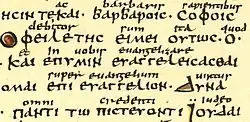 ac barbaris sapientibus
ΗCΙΝ ΤΕ ΚΑΙ· ΒΑΡΒΑΡΟΙC· CΟΦΟΙC
debitor sum ita quod
ΟΦΕΙΛΕΤΗC ΕΙΜΕΙ ΟΥΤΩC· Ο·
et in vobis evangelizare
ΚΑΙ ΕΠ ΥΜΙΝ ΕΥΑΓΓΕΛΗCΑCΘΑΙ
super evangelium virtus
ΟΜΑΙ ΕΠΙ ΕΥΑΓΓΕΛΙΟΝ· ΔΥΝΑ
omni credenti iudeo
ΠΑΝΤΙ ΤΩ ΠΙCΤΕΥΟΝΤΙ ΙΟΥΔΑΙ